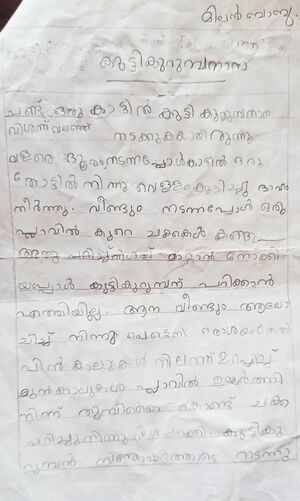 മിലൻ ബാബു.
കുട്ടികുറുമ്പനാന
പണ്ട് ഒരു കാട്ടിൻ കുടി കുറുമ്പനാന
വിശന്ന് വലഞ്ഞ്
നടക്കുകയായിരുന്നു.
വളരെ ദൂരം നടന്നപ്പോൾ കാട്ടിൽ ഒരു
തോട്ടിൽ നിന്നു വെള്ളം കുടിച്ചു ദാഹം
തീർത്തു. വീണ്ടും നടന്നപ്പോൾ ഒരു
പ്ലാവിൽ കുറെ ചക്കകൾ കണ്ടു
നോക്കി
യപ്പോൾ കുട്ടികുറുമ്പന് പറിക്കാൻ
എത്തിയില്ല. ആന വീണ്ടും ആലോ
ചിച്ച് നിന്നു പെട്ടെന്ന്
പിൻ കാലുകൾ നിലത്ത് ഉറപ്പിച്ച്
മുൻകാലുകൾ പ്ലാവിൽ ഉയർത്തി
നിന്ന് തുമ്പിയെ കൊണ്ട് ചക്ക
കുട്ടികു
റുമ്പൻ സന്തോഷത്തോടെ നടന്നു